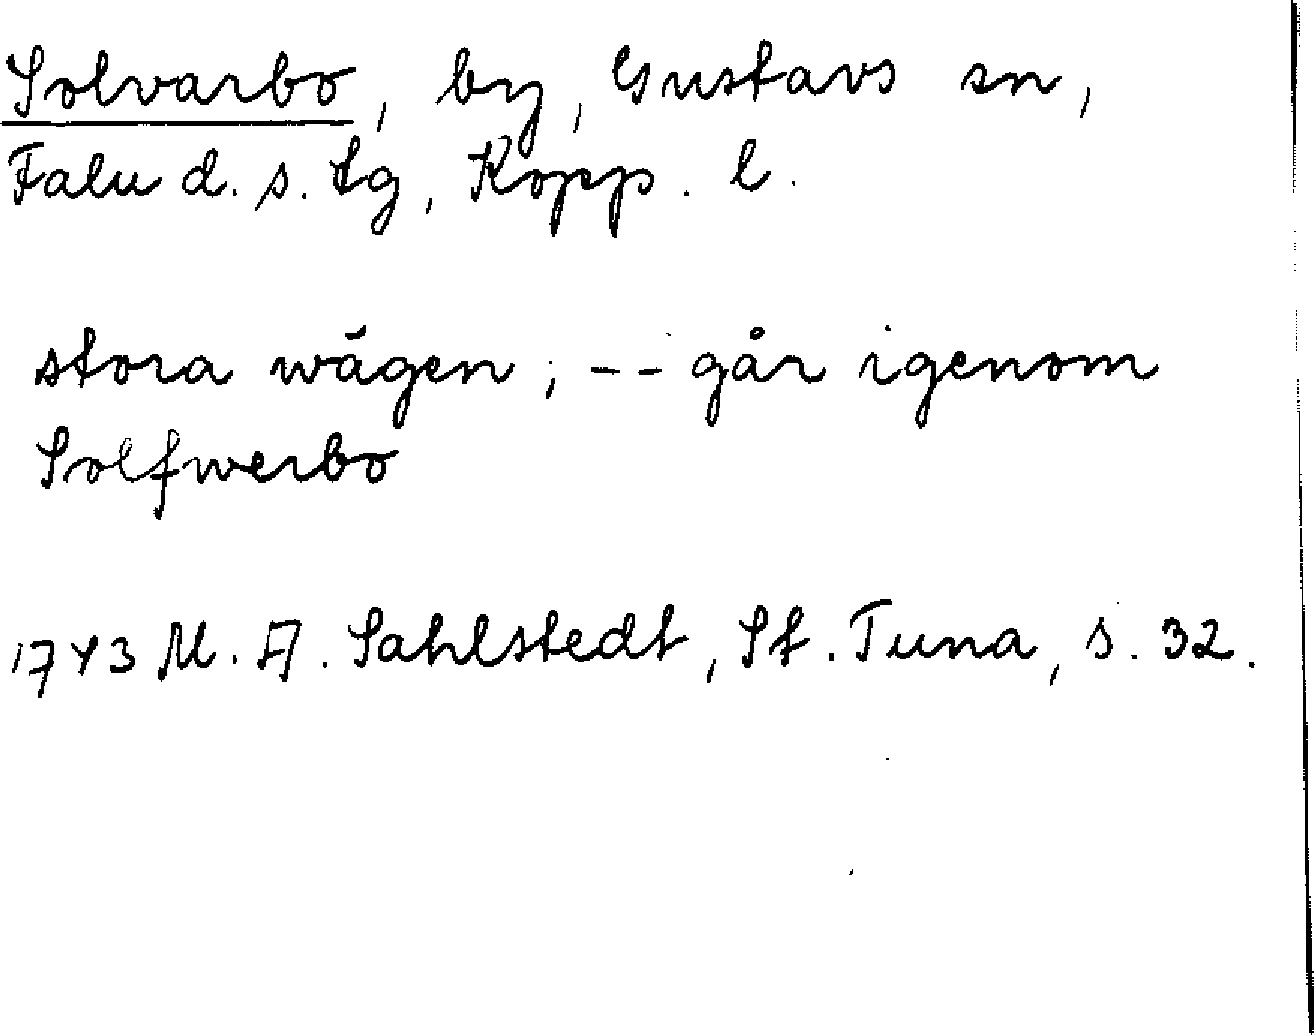 Solvarbo, by, Gustavs sn,
Falu d. s. tg, Kopp. l.
stora wägen; -- går igenom
Solfwerbo
1743 M. A. Sahlstedt, St. Tuna, s. 32.